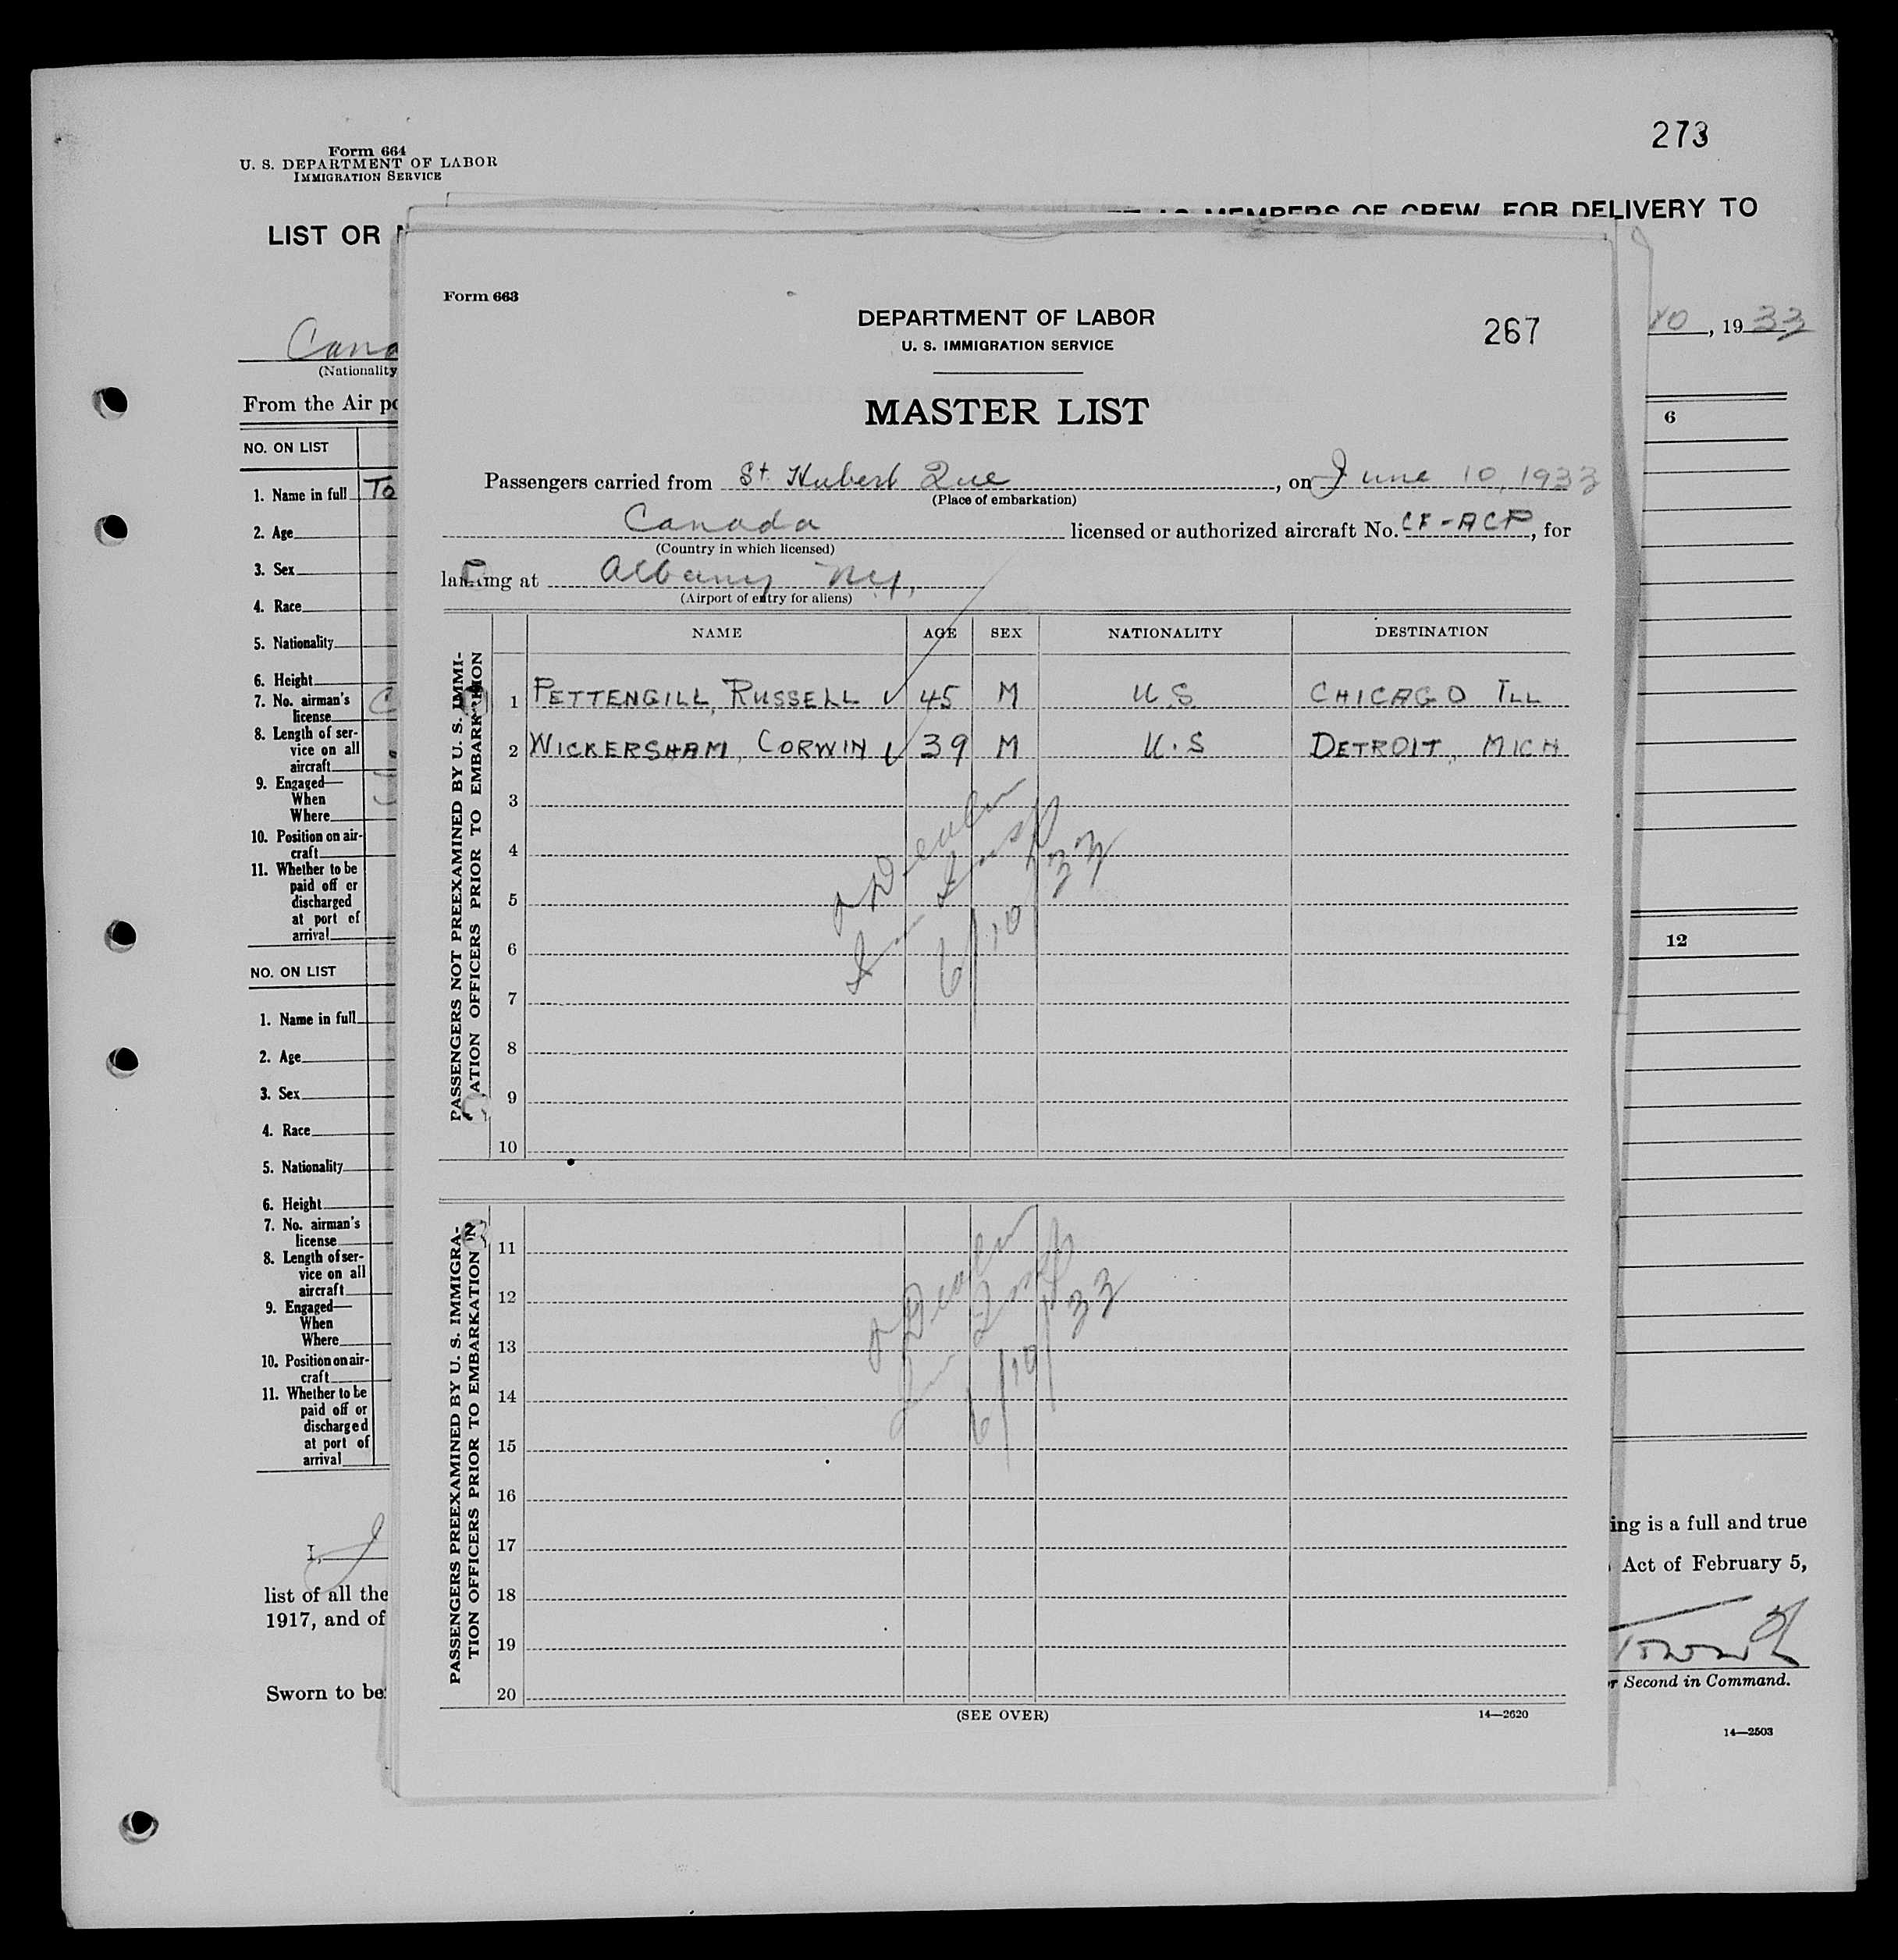 273
Form 664
U. S. DEPARTMENT OF LABOR
IMMIGRATION SERVICE
LIST OR
MEMBERS OF CREW, FOR DELIVERY TO
, 1933
(Nationality
From the Air po
NO. ON LIST
6
1. Name in full To
2. Age
3. Sex
4. Race
5. Nationality
6. Height
7. No. airman's
license
8. Length of ser-
vice on all
aircraft
9. Engaged—
When
Where
10. Position on air-
craft
11. Whether to be
paid off or
discharged
at port of
arrival
NO. ON LIST
12
1. Name in full
2. Age
3. Sex
4. Race
5. Nationality
6. Height
7. No. airman's
license
8. Length of ser-
vice on all
aircraft
9. Engaged—
When
Where
10. Position on air-
craft
11. Whether to be
paid off or
discharged
at port of
arrival
I,
ing is a full and true
list of all the
Act of February 5,
1917, and of
Sworn to be
r Second in Command.
14—2503
Form 663
DEPARTMENT OF LABOR
267
U. S. IMMIGRATION SERVICE
MASTER LIST
Passengers carried from St Hubert Que, on June 10, 1933
(Place of embarkation)
Canada licensed or authorized aircraft No. CF-ACP, for
(Country in which licensed)
landing at Albany NY,
(Airport of entry for aliens)
NAME AGE SEX NATIONALITY DESTINATION
PASSENGERS NOT PREEXAMINED BY U. S. IMMI-
GRATION OFFICERS PRIOR TO EMBARKATION
1 PETTENGILL, RUSSELL ✓ 45 M U S CHICAGO ILL
2 WICKERSHAM, CORWIN ✓ 39 M U.S DETROIT, MICH
3
4
5
6
7
8
9
10
Imm Insp
6/10/33
PASSENGERS PREEXAMINED BY U. S. IMMIGRA-
TION OFFICERS PRIOR TO EMBARKATION
11
12
13
14
15
16
17
18
19
20
Imm Insp
6/10/33
(SEE OVER)
14—2620